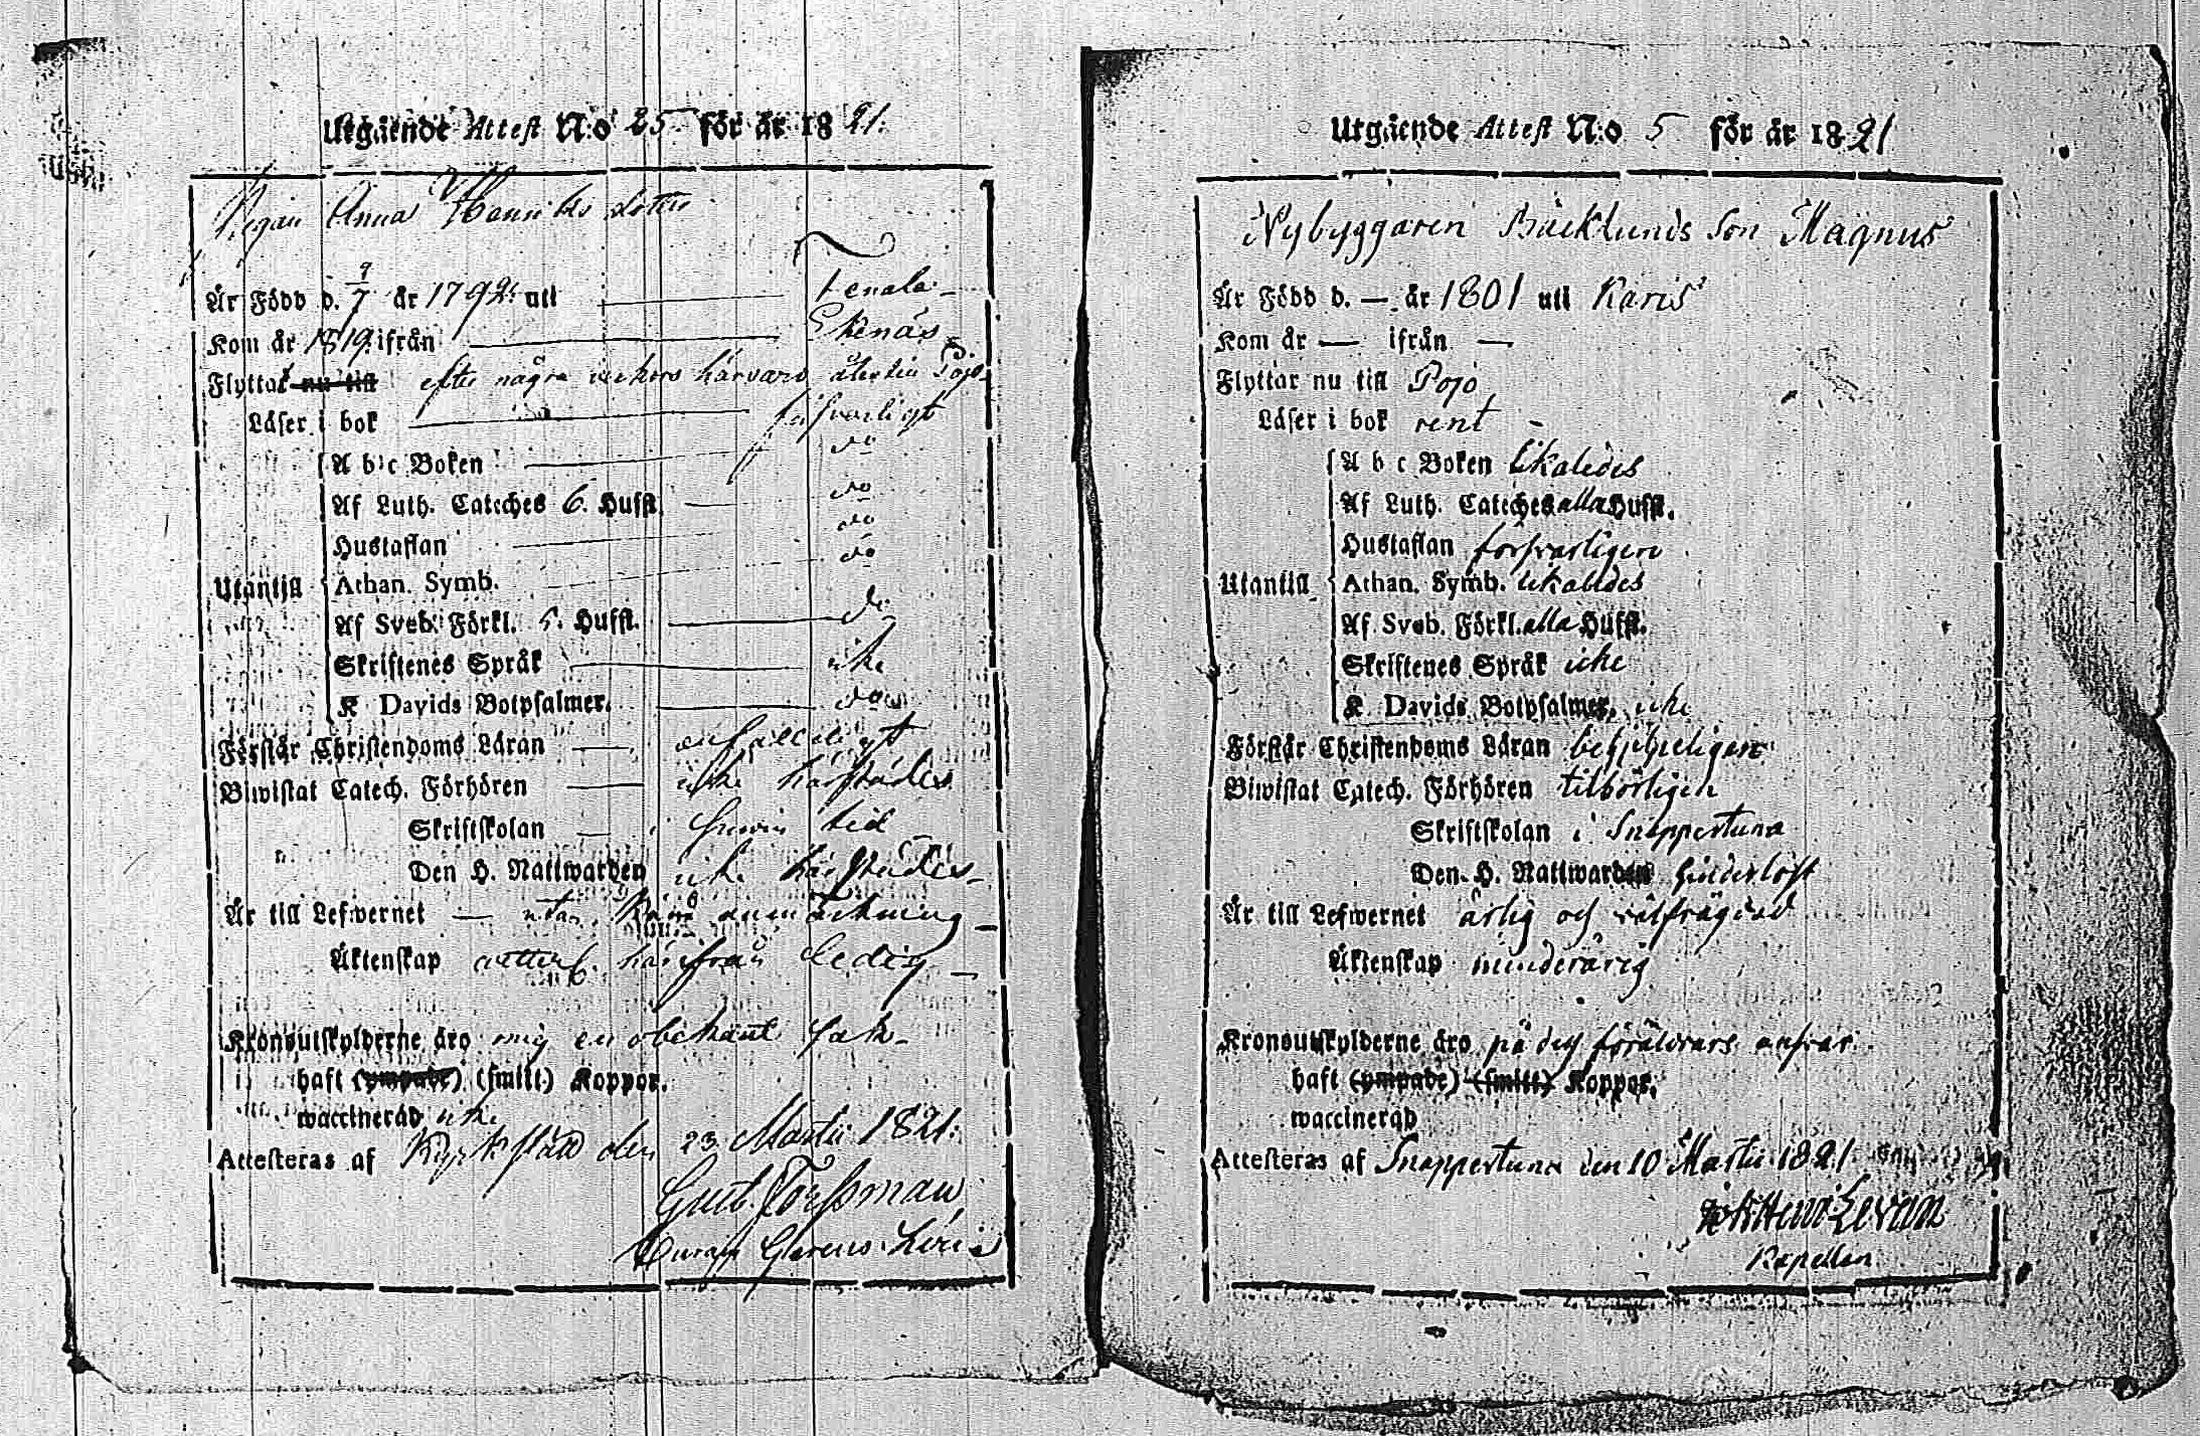 Utgående Attest N:o 25 för år 1821.
Pigan Anna Henriksdotter
Är Född d. 9/7 år 1792. uti Tenala
Kom år 1819. ifrån Ekenäs
Flyttar nu till efter några veckors härvaro åter till Pojo
Läser i bok försvarligt
A b c Boken do
Af Luth. Cateches 6. Hufst. do
Hustaflan do
Utantill Athan. Symb. do
Af Sveb. Förkl. 5. Hufst. do
Skriftenes Språk icke
K Davids Botpsalmer. do
Förstår Christendoms Läran enfaldigt
Biwistat Catech. Förhören icke härstädes
Skriftskolan i sinom tid
Den H. Nattwarden icke härstädes
Är till Lefwernet utan anmärkning
Äktenskap härifrån Ledig
Kronoutskylderne äro mig en obekant sak
haft (ympade) (smitt.) Koppor.
waccinerad icke
Attesteras af Kyrkslätt den 23 Martii 1821.
Gust. Forssman
Utgående Attest N:o 5 för år 1821
Nybyggaren Bäcklunds Son Magnus
Är Född d. — år 1801 uti Karis
Kom år — ifrån —
Flyttar nu till Pojo
Läser i bok rent
A b c Boken likaledes
Af Luth. Cateches alla Hufst.
Hustaflan försvarligen
Utantill Athan. Symb. likaledes
Af Sveb. Förkl. alla Hufst.
Skriftenes Språk icke
K Davids Botpsalmer, icke
Förstår Christendoms Läran behjelpeligen
Biwistat Catech. Förhören tilbörligen
Skriftskolan i Snappertuna
Den H. Nattwarden hinderlöst
Är till Lefwernet ärlig och välfrägdad
Äktenskap minderårig
Kronoutskylderne äro på dess föräldrars ansvar
haft (ympade) (smitt) Koppor.
waccinerad
Attesteras af Snappertuna den 10 Martii 1821
Levan
Kapellan